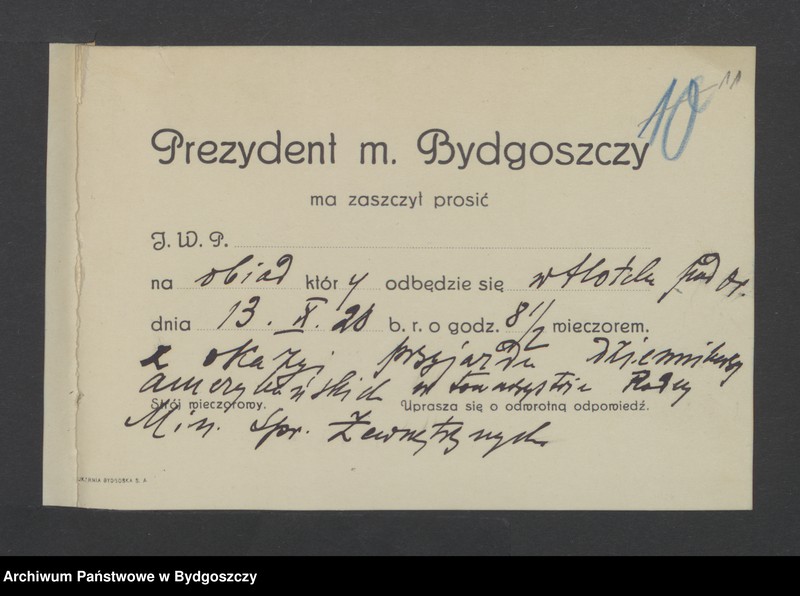 10 11
Prezydent m. Bydgoszczy
ma zaszczyt prosić
J. W. P.
na obiad który odbędzie się w Hotelu pod Or.
dnia 13. X. 20 b. r. o godz. 8 1/2 wieczorem.
z okazji przyjazdu dziennikarzy
amerykańskich w towarzystwie Radcy
Strój wieczorowy. Uprasza się o odwrotną odpowiedź.
Min. Spr. Zewnętrznych
BYDGOSKA S. A.
Archiwum Państwowe w Bydgoszczy